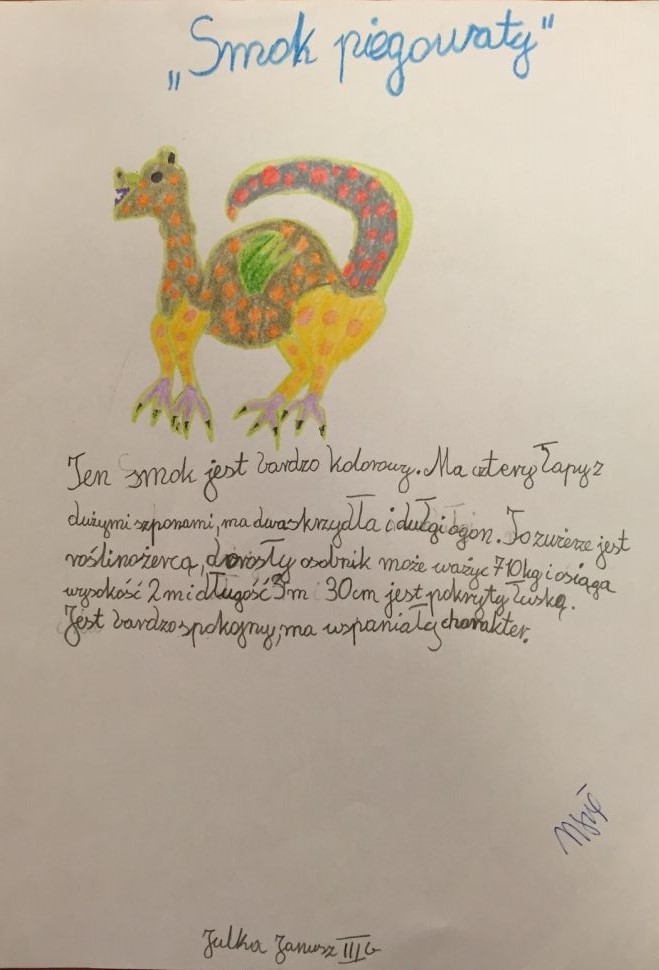 „Smok piegowaty”
Ten smok jest bardzo kolorowy. Ma cztery łapy z
dużymi szponami, ma dwa skrzydła i długi ogon. To zwierze jest
roślinożercą, dorosły osobnik może ważyć 710kg i osiąga
wysokość 2m i długość 3m 30cm jest pokryty łuską.
Jest bardzo spokojny, ma wspaniały charakter.
Julka Janusz III b